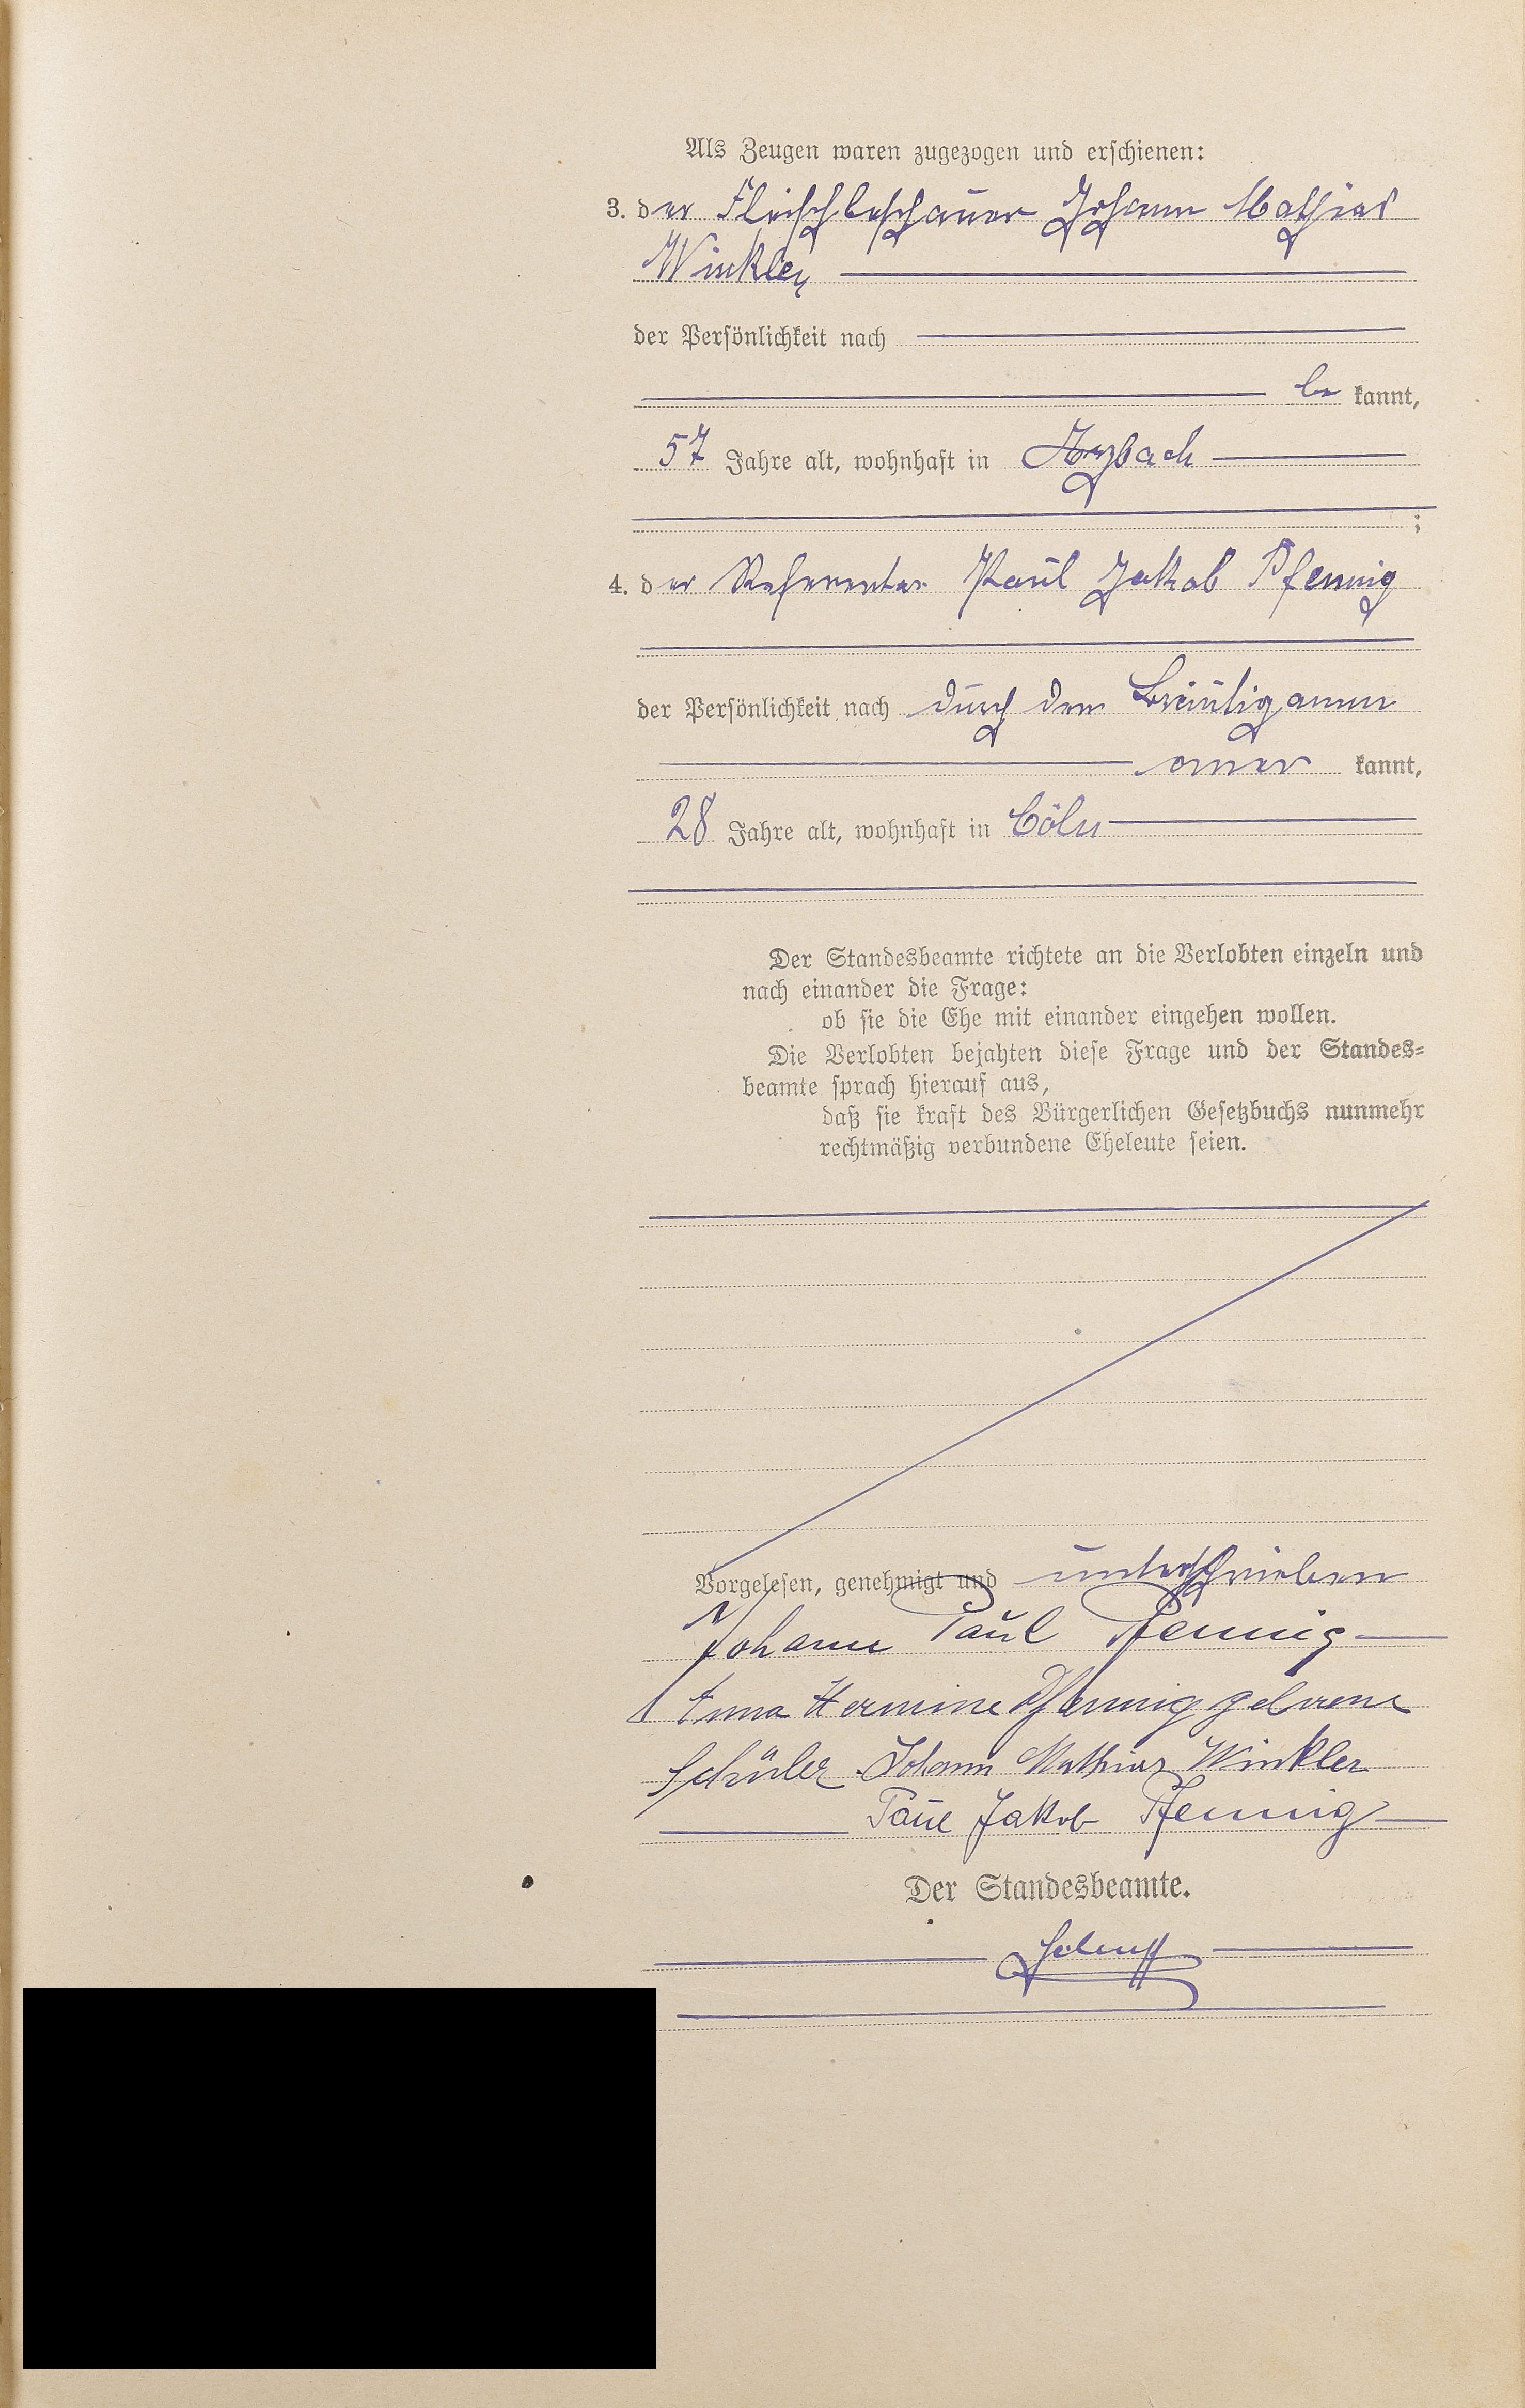 Als Zeugen waren zugezogen und erschienen:
3. der Fleischbeschauer Johann Mathias
Winkler
der Persönlichkeit nach
be kannt,
57 Jahre alt, wohnhaft in
;
4. der Referendar Paul Jakob Pfennig
der Persönlichkeit nach durch den Bräutigamm
aner kannt,
28 Jahre alt, wohnhaft in Cöln
Der Standesbeamte richtete an die Verlobten einzeln und
nach einander die Frage:
ob sie die Ehe mit einander eingehen wollen.
Die Verlobten bejahten diese Frage und der Standes-
beamte sprach hierauf aus,
daß sie kraft des Bürgerlichen Gesetzbuchs nunmehr
rechtmäßig verbundene Eheleute seien.
Vorgelesen, genehmigt und unterschrieben
Johann Paul Pfennig
Anna Hermine Pfennig geborene
Schüler Johann Mathias Winkler
Paul Jakob Pfennig
Der Standesbeamte.